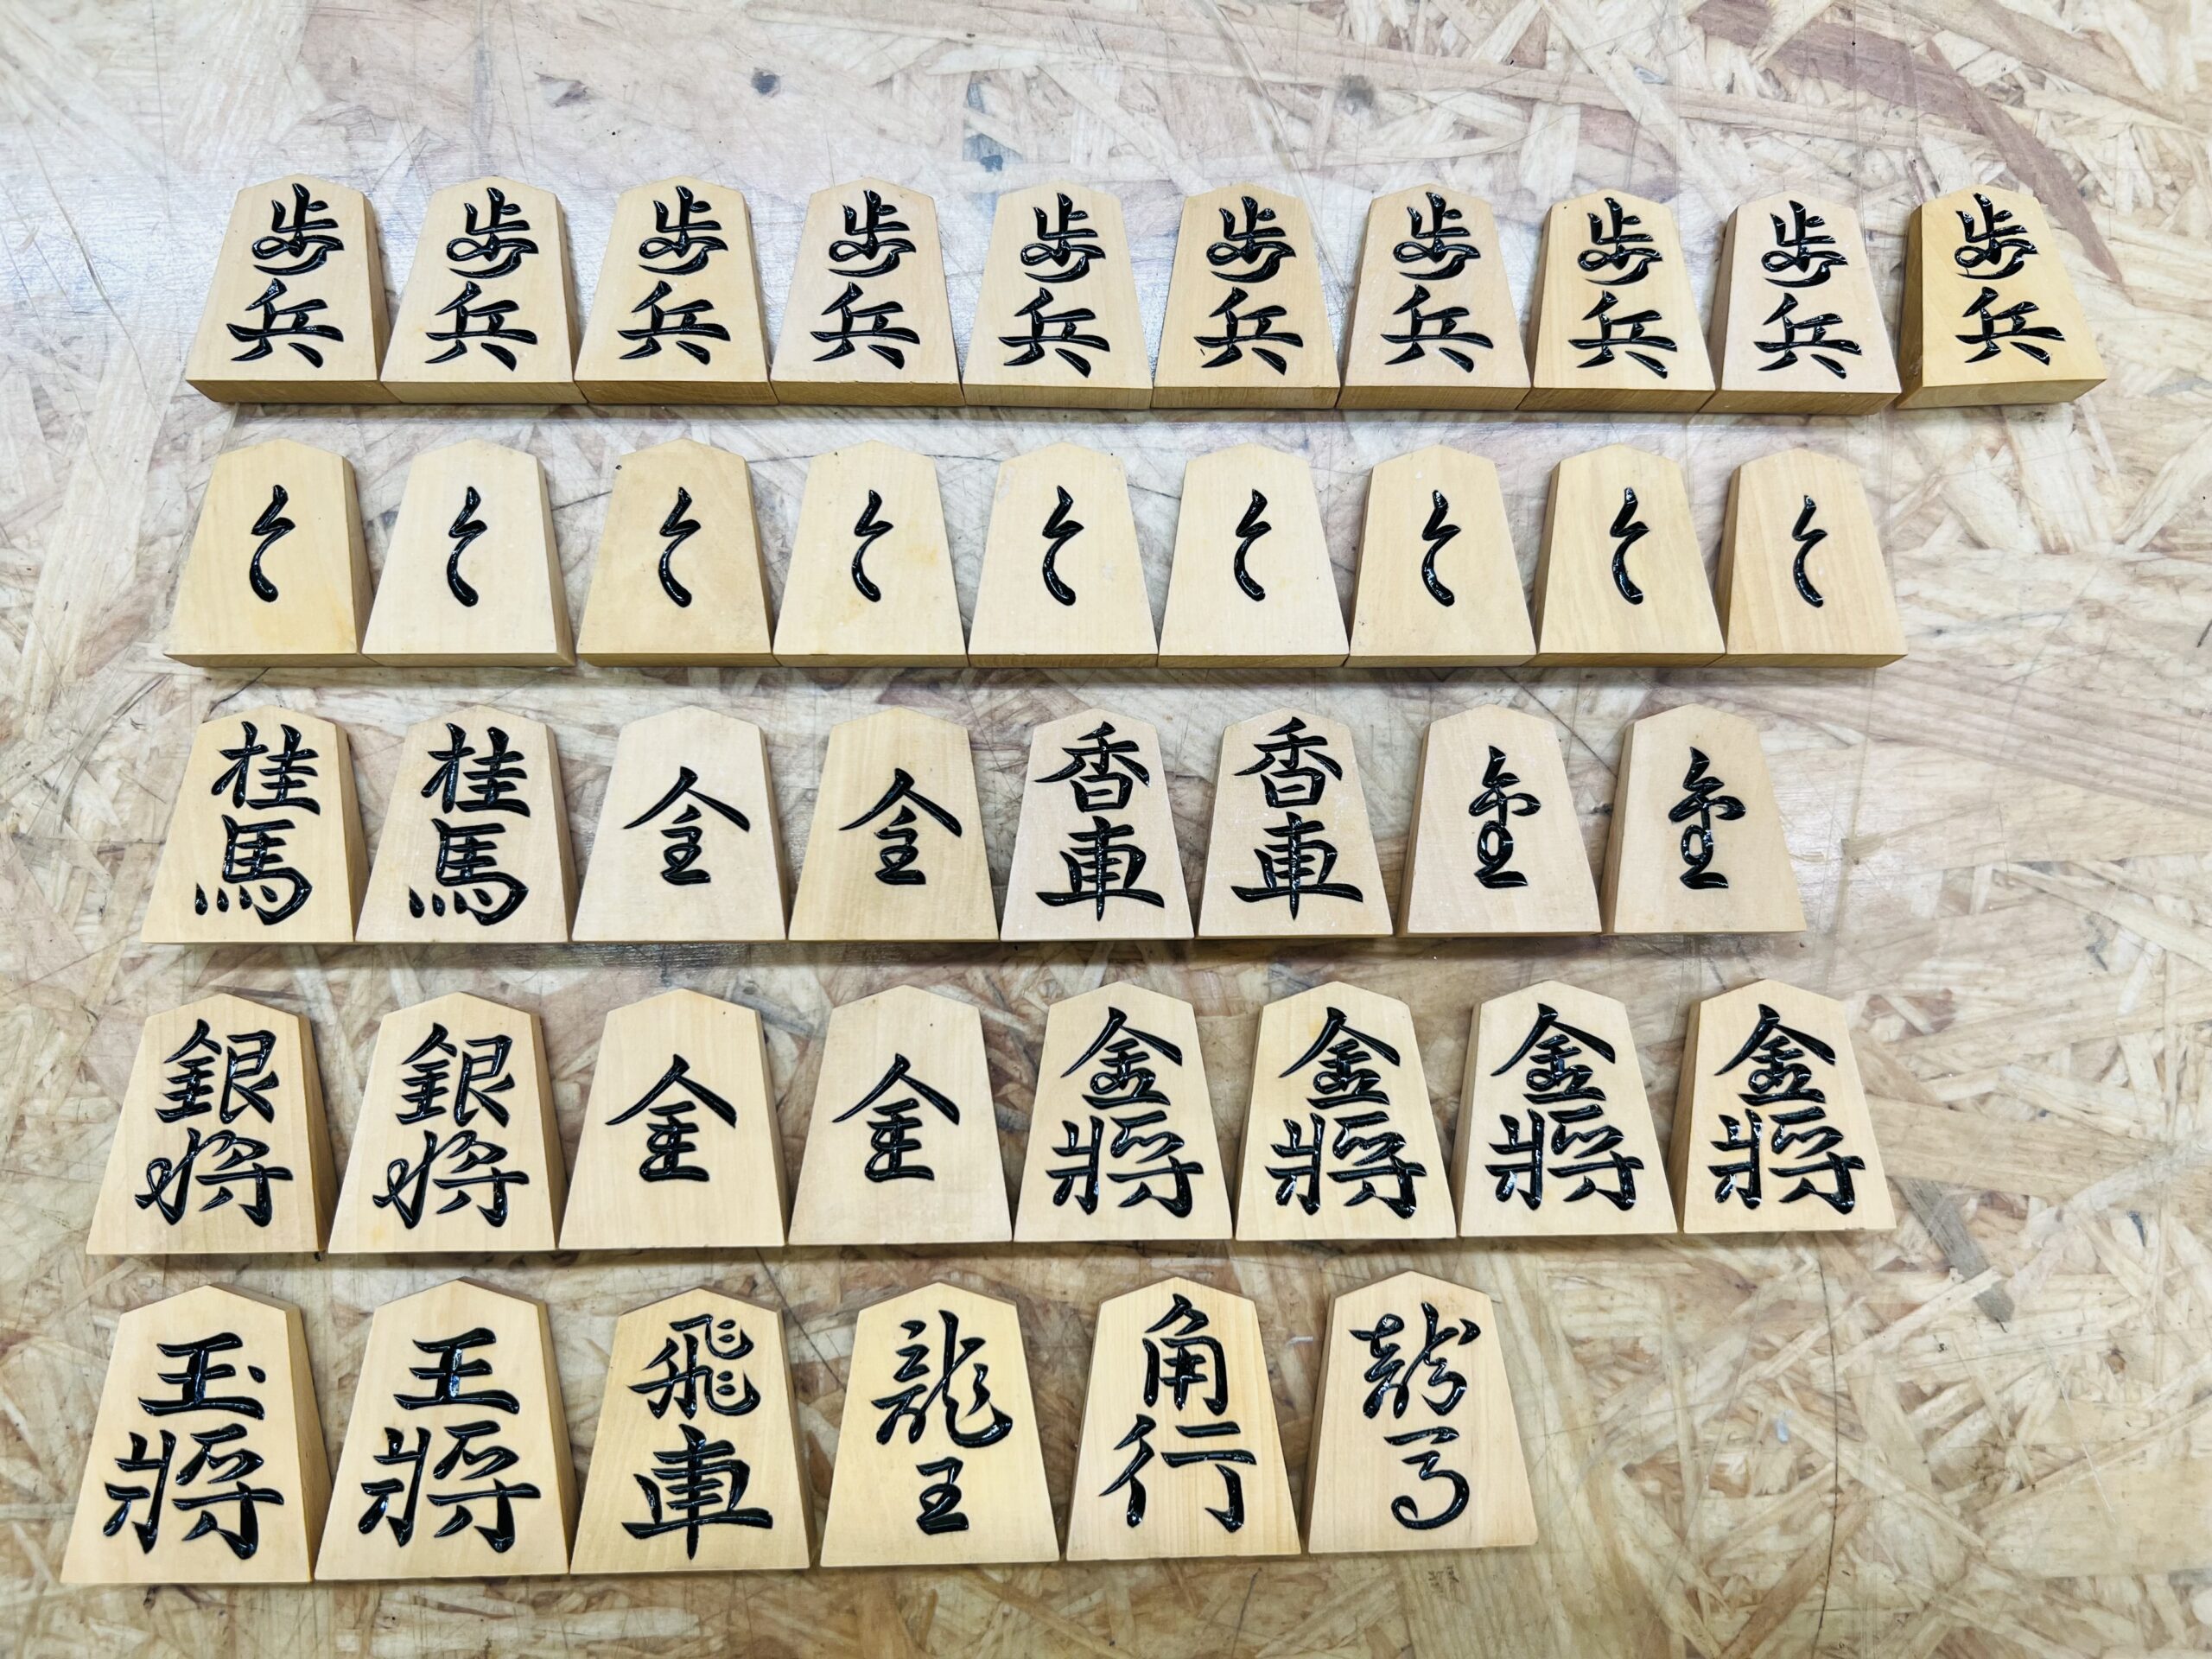 歩兵 歩兵 歩兵 歩兵 歩兵 歩兵 歩兵 歩兵 歩兵 歩兵
と と と と と と と と と
桂馬 桂馬 金 金 香車 香車 金 金
銀将 銀将 金 金 金將 金將 金將 金將
玉將 王將 飛車 龍王 角行 龍馬